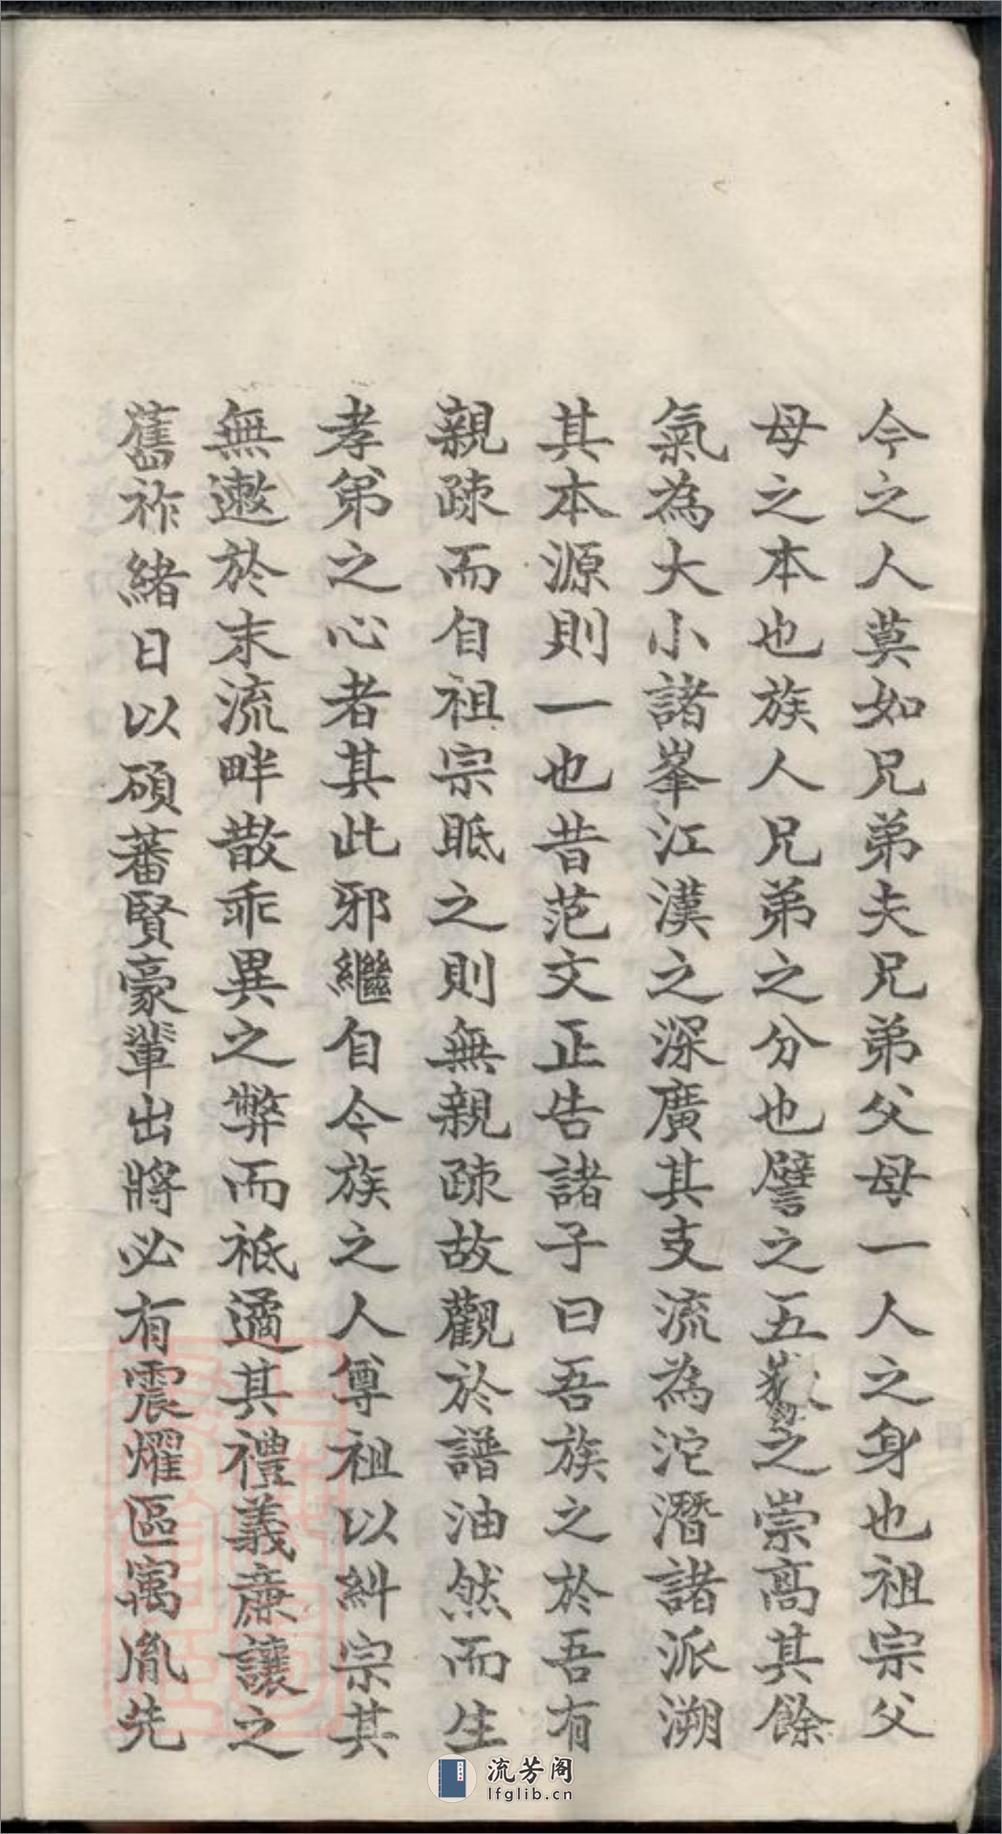 今之人莫如兄弟夫兄弟父母一人之身也祖宗父
母之本也族人兄弟之分也譬之五之崇高其餘
氣為大小諸峯江漢之深廣其支流為沱潛諸派溯
其本源則一也昔范文正告諸子曰吾族之於吾有
親疎而自祖宗眡之則無親疎故觀於譜油然而生
孝弟之心者其此邪繼自今族之人尊祖以糾宗其
無遬於末流畔散乖異之弊而祗遹其禮義亷讓之
舊祚緒日以碩蕃賢豪輩出將必有震燿區㝢胤先
流芳阁
lfglib.cn